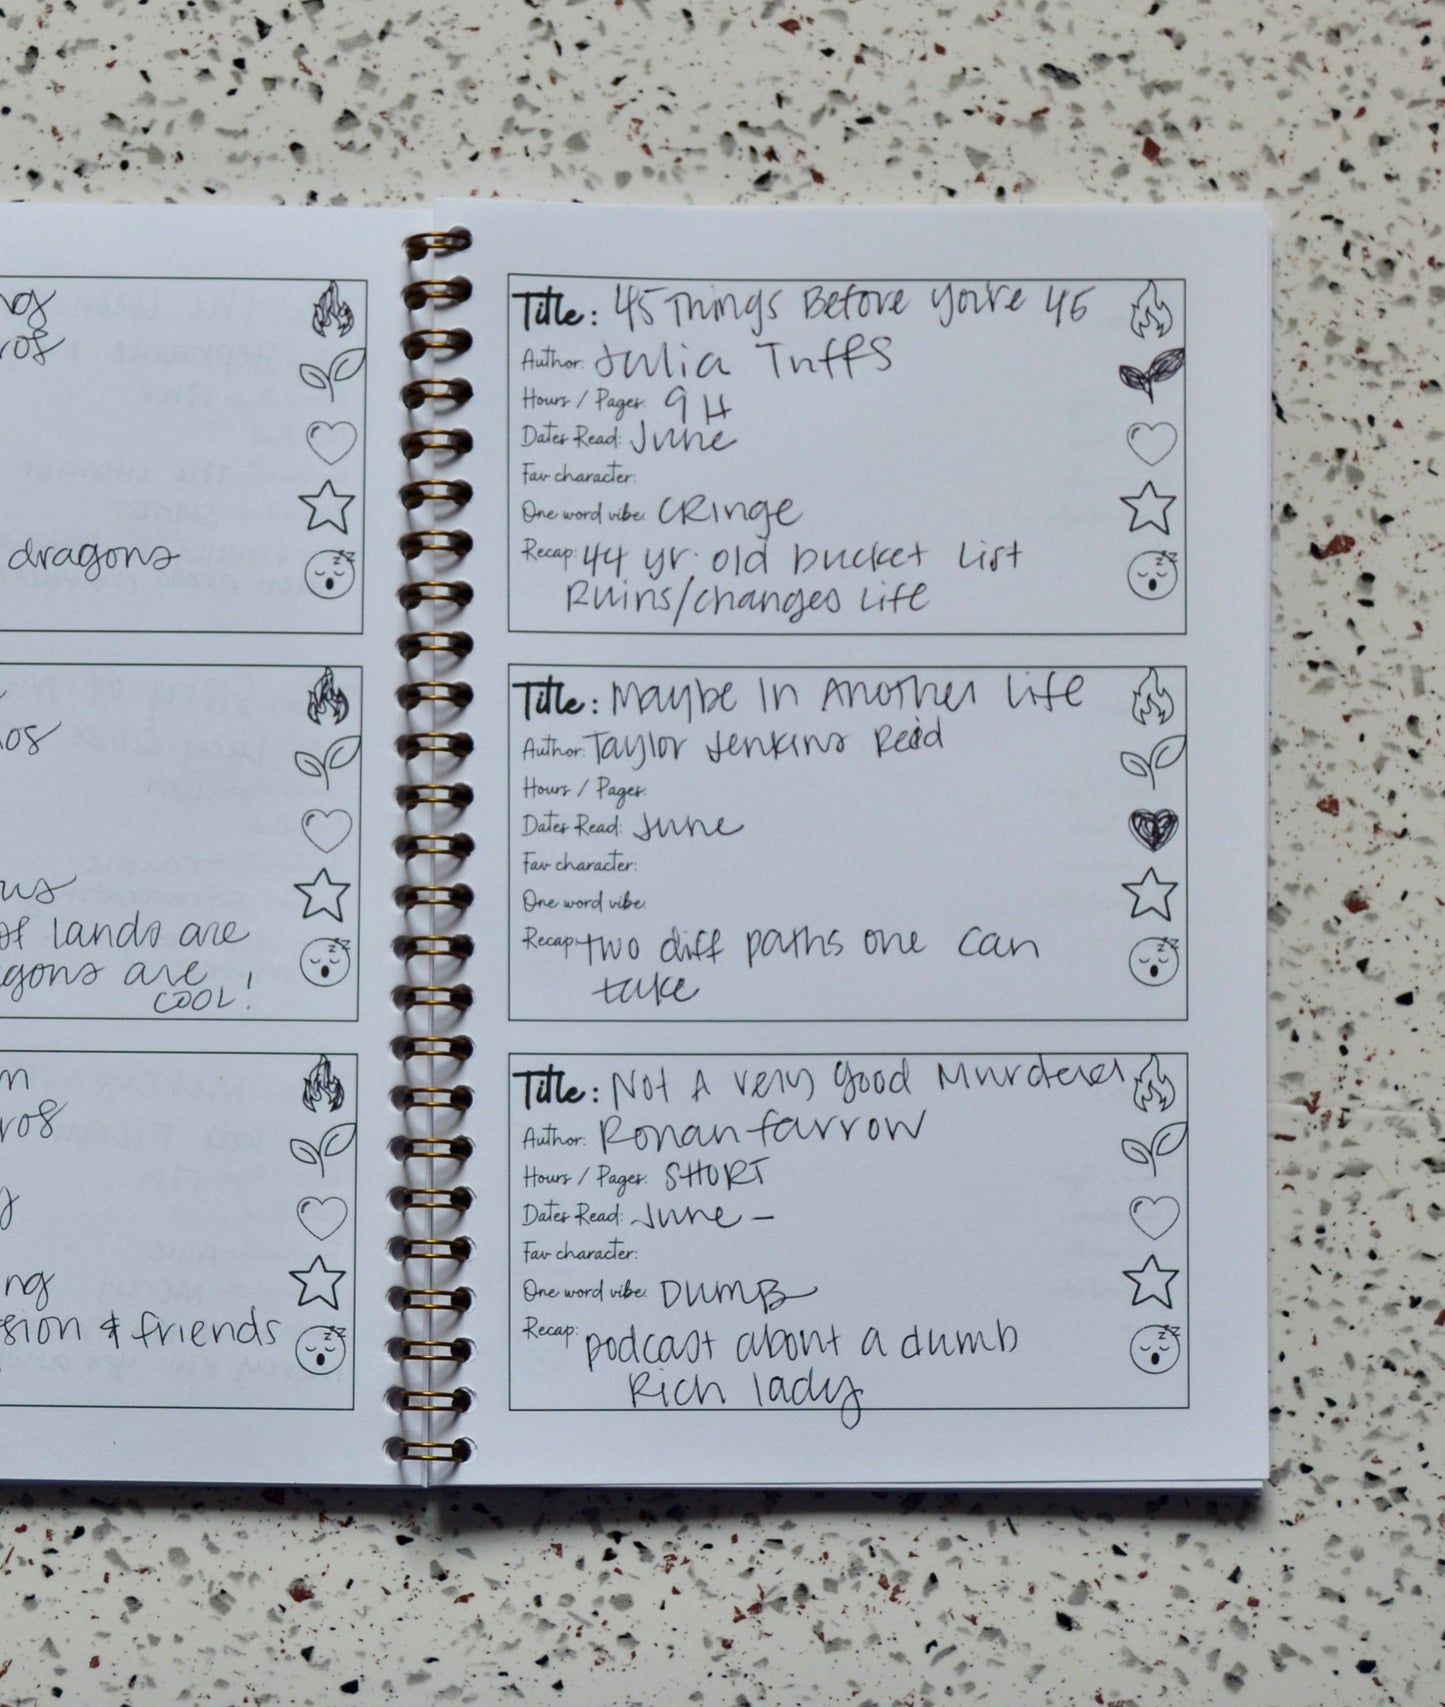 dragons
of lands are
dragons are
COOL!
sion & friends
Title: 45 Things Before You're 45
Author: Julia Tuffs
Hours / Pages: 9 H
Dates Read: June
Fav character:
One word vibe: CRinge
Recap: 44 yr. old bucket list
Ruins/changes Life
Title: Maybe In Another Life
Author: Taylor Jenkins Reid
Hours / Pages:
Dates Read: June
Fav character:
One word vibe:
Recap: two diff paths one can
take
Title: Not A very good Murderer
Author: Ronan farrow
Hours / Pages: SHORT
Dates Read: June -
Fav character:
One word vibe: DUMB
Recap: podcast about a dumb
Rich lady